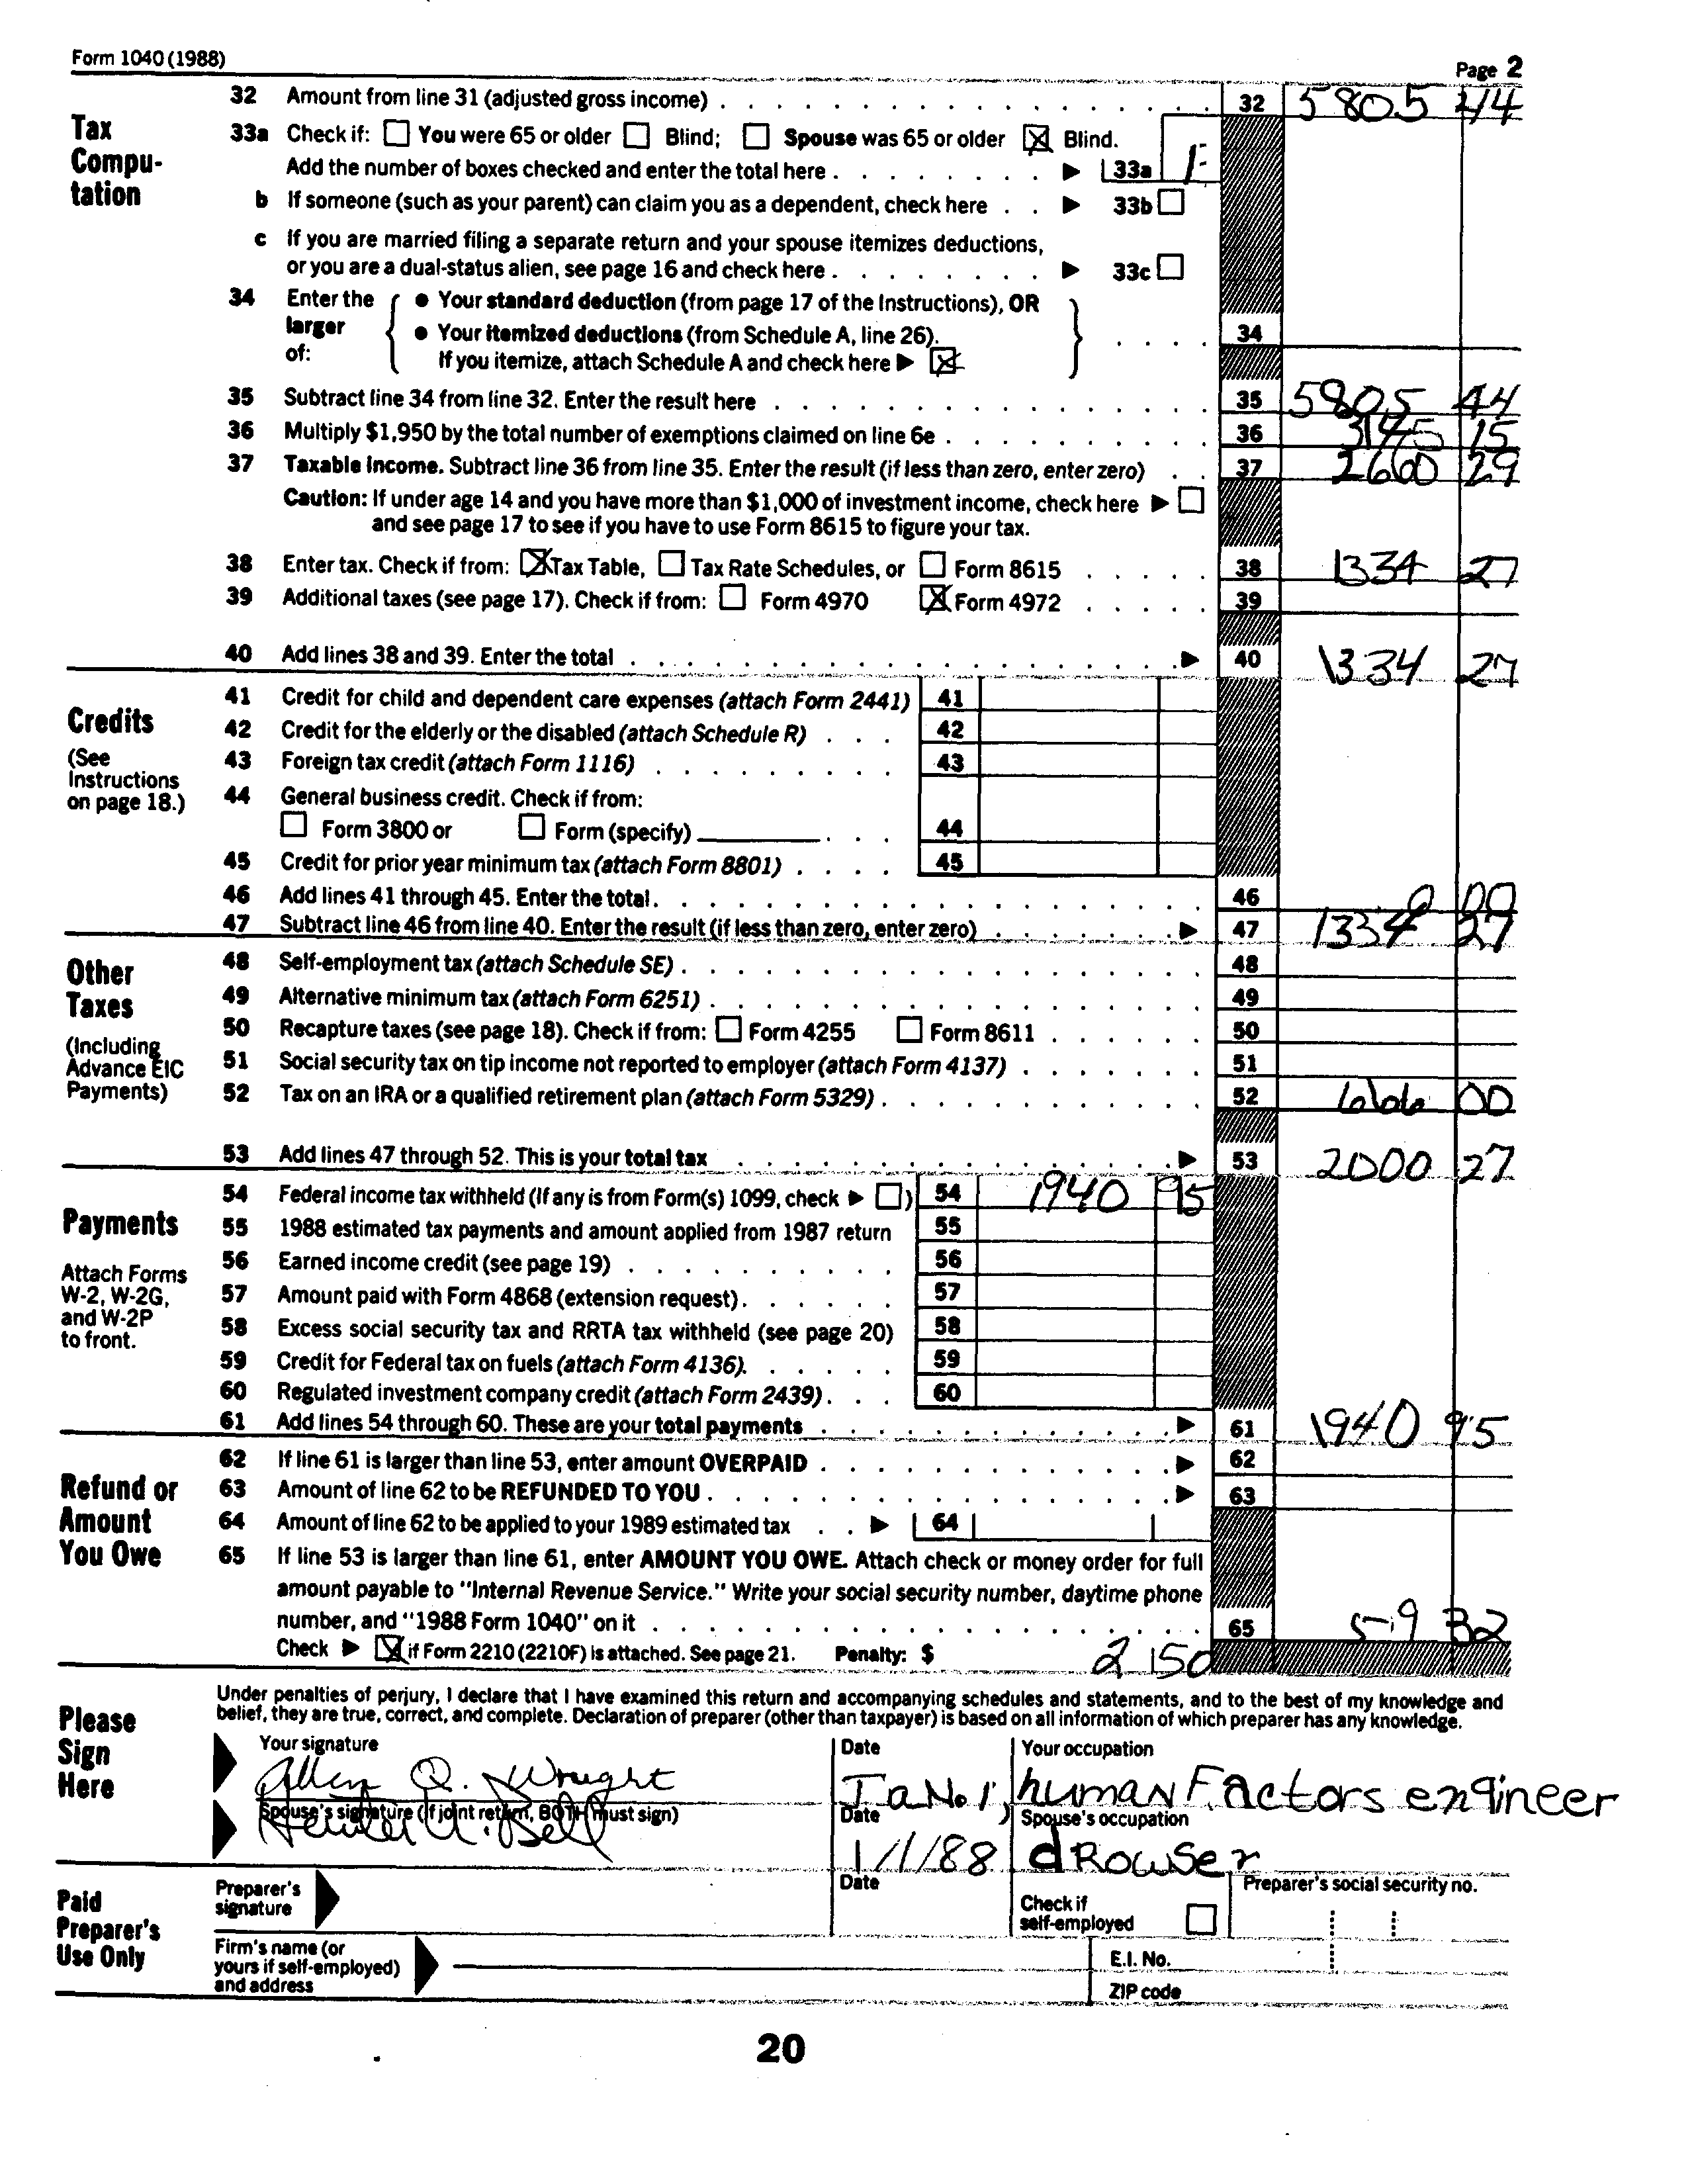 Form 1040 (1988)
Page 2
Tax Compu-tation
32 Amount from line 31 (adjusted gross income) . . . 32 5805 44
33a Check if: ☐ You were 65 or older ☐ Blind; ☐ Spouse was 65 or older ☒ Blind.
Add the number of boxes checked and enter the total here . . . ▶ 33a 1
b If someone (such as your parent) can claim you as a dependent, check here . . ▶ 33b ☐
c If you are married filing a separate return and your spouse itemizes deductions,
or you are a dual-status alien, see page 16 and check here . . . ▶ 33c ☐
34 Enter the larger of: { ● Your standard deduction (from page 17 of the Instructions), OR
● Your itemized deductions (from Schedule A, line 26).
If you itemize, attach Schedule A and check here ▶ ☒ } . . . . 34
35 Subtract line 34 from line 32. Enter the result here . . . 35 5805 44
36 Multiply $1,950 by the total number of exemptions claimed on line 6e . . . 36 3145 15
37 Taxable income. Subtract line 36 from line 35. Enter the result (if less than zero, enter zero) . . 37 2660 29
Caution: If under age 14 and you have more than $1,000 of investment income, check here ▶ ☐
and see page 17 to see if you have to use Form 8615 to figure your tax.
38 Enter tax. Check if from: ☒ Tax Table, ☐ Tax Rate Schedules, or ☐ Form 8615 . . . 38 1334 27
39 Additional taxes (see page 17). Check if from: ☐ Form 4970 ☒ Form 4972 . . . 39
40 Add lines 38 and 39. Enter the total . . . ▶ 40 1334 27
Credits
(See Instructions on page 18.)
41 Credit for child and dependent care expenses (attach Form 2441) 41
42 Credit for the elderly or the disabled (attach Schedule R) . . . 42
43 Foreign tax credit (attach Form 1116) . . . 43
44 General business credit. Check if from:
☐ Form 3800 or ☐ Form (specify) ________ . . . 44
45 Credit for prior year minimum tax (attach Form 8801) . . . . 45
46 Add lines 41 through 45. Enter the total . . . 46 0 00
47 Subtract line 46 from line 40. Enter the result (if less than zero, enter zero) . . . ▶ 47 1334 27
Other Taxes
(Including Advance EIC Payments)
48 Self-employment tax (attach Schedule SE) . . . 48
49 Alternative minimum tax (attach Form 6251) . . . 49
50 Recapture taxes (see page 18). Check if from: ☐ Form 4255 ☐ Form 8611 . . . 50
51 Social security tax on tip income not reported to employer (attach Form 4137) . . . 51
52 Tax on an IRA or a qualified retirement plan (attach Form 5329) . . . 52 666 00
53 Add lines 47 through 52. This is your total tax . . . ▶ 53 2000 27
Payments
Attach Forms W-2, W-2G, and W-2P to front.
54 Federal income tax withheld (If any is from Form(s) 1099, check ▶ ☐) 54 1940 95
55 1988 estimated tax payments and amount applied from 1987 return 55
56 Earned income credit (see page 19) . . . 56
57 Amount paid with Form 4868 (extension request) . . . 57
58 Excess social security tax and RRTA tax withheld (see page 20) 58
59 Credit for Federal tax on fuels (attach Form 4136). . . . 59
60 Regulated investment company credit (attach Form 2439) . . . 60
61 Add lines 54 through 60. These are your total payments . . . ▶ 61 1940 95
Refund or Amount You Owe
62 If line 61 is larger than line 53, enter amount OVERPAID . . . ▶ 62
63 Amount of line 62 to be REFUNDED TO YOU . . . ▶ 63
64 Amount of line 62 to be applied to your 1989 estimated tax . . ▶ 64
65 If line 53 is larger than line 61, enter AMOUNT YOU OWE. Attach check or money order for full
amount payable to "Internal Revenue Service." Write your social security number, daytime phone
number, and "1988 Form 1040" on it . . . 65 59 32
Check ▶ ☒ if Form 2210 (2210F) is attached. See page 21. Penalty: $ 2 150
Please Sign Here
Under penalties of perjury, I declare that I have examined this return and accompanying schedules and statements, and to the best of my knowledge and
belief, they are true, correct, and complete. Declaration of preparer (other than taxpayer) is based on all information of which preparer has any knowledge.
Your signature Date Your occupation
Allen Q. Wright Jan. 1, human Factors engineer
Spouse's signature (if joint return, BOTH must sign) Date Spouse's occupation
Bell 1/1/88 dRowser
Paid Preparer's Use Only
Preparer's signature Date Check if self-employed ☐ Preparer's social security no.
Firm's name (or yours if self-employed) and address E.I. No.
ZIP code
20